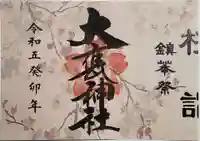 鎮華祭
大甕神社
令和五癸卯年